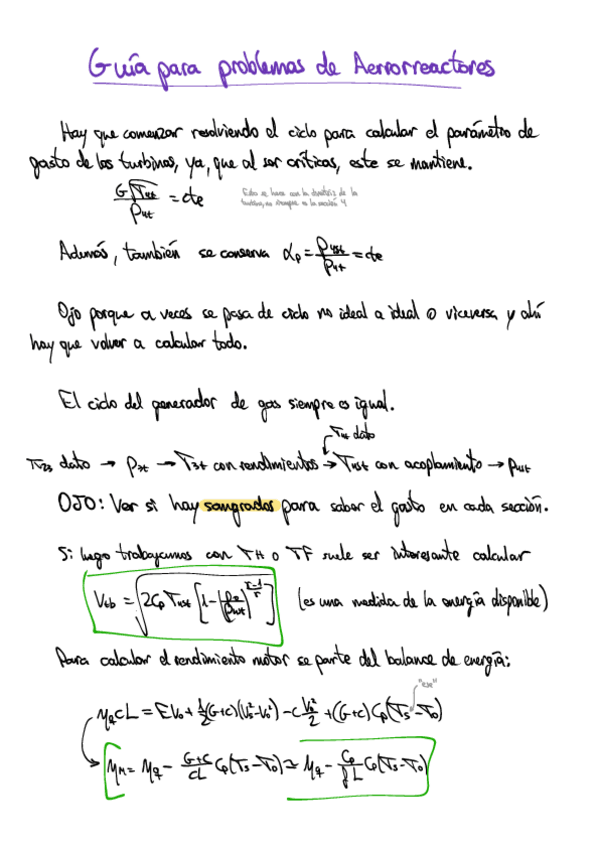 Guía para problemas de Aerrorreactores
Hay que comenzar resolviendo el ciclo para calcular el parámetro de
gasto de las turbinas, ya, que al ser críticas, este se mantiene.
G√T4t / P4t = cte
Esto se hace con la directriz de la
turbina, no siempre es la sección 4
Además, también se conserva αp = P45t / P4t = cte
Ojo porque a veces se pasa de ciclo no ideal a ideal o viceversa y ahí
hay que volver a calcular todo.
El ciclo del generador de gas siempre es igual.
T4t dato
π23 dato → P3t → T3t con rendimientos → T45t con acoplamiento → P45t
OJO: Ver si hay sangrados para saber el gasto en cada sección.
Si luego trabajamos con TH o TF suele ser interesante calcular
(es una medida de la energía disponible)
Para calcular el rendimiento motor se parte del balance de energía:
"exe"
ηq cL = EV0 + 1/2 (G+c)(Vs² - V0²) - c V0²/2 + (G+c) Cp(Ts - T0)
ηM = ηq - G+c / cL Cp(Ts - T0) ≃ ηq - Cp / fL Cp(Ts - T0)